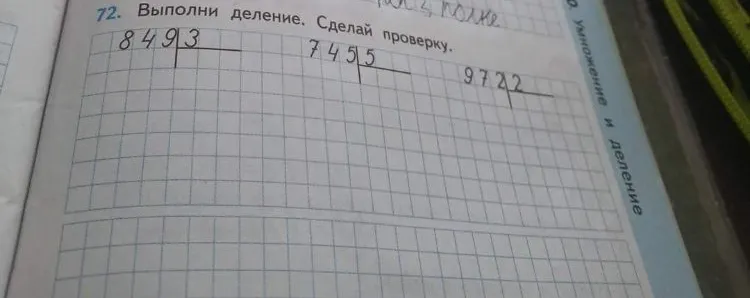 полке
72. Выполни деление. Сделай проверку.
849 3
745 5
972 2
умножение и деление